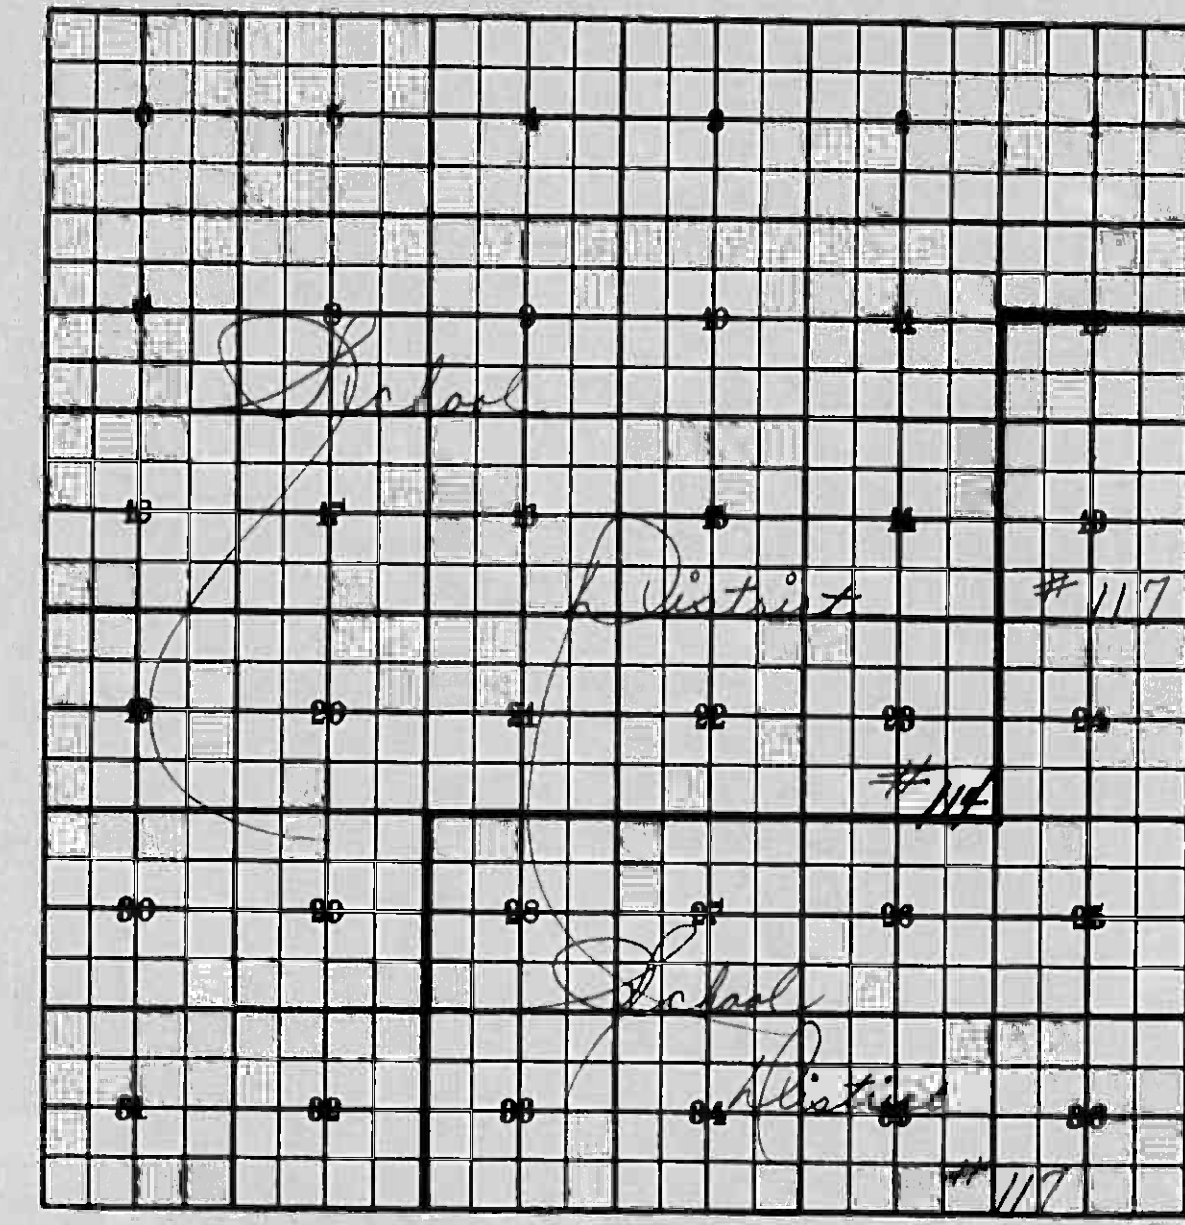 6 5 4 3 2
7 8 9 10 11 12
School
18 17 16 15 14 13
District # 117
19 20 21 22 23 24
# 114
30 29 28 27 26 25
School
District
31 32 33 34 35 36
# 117